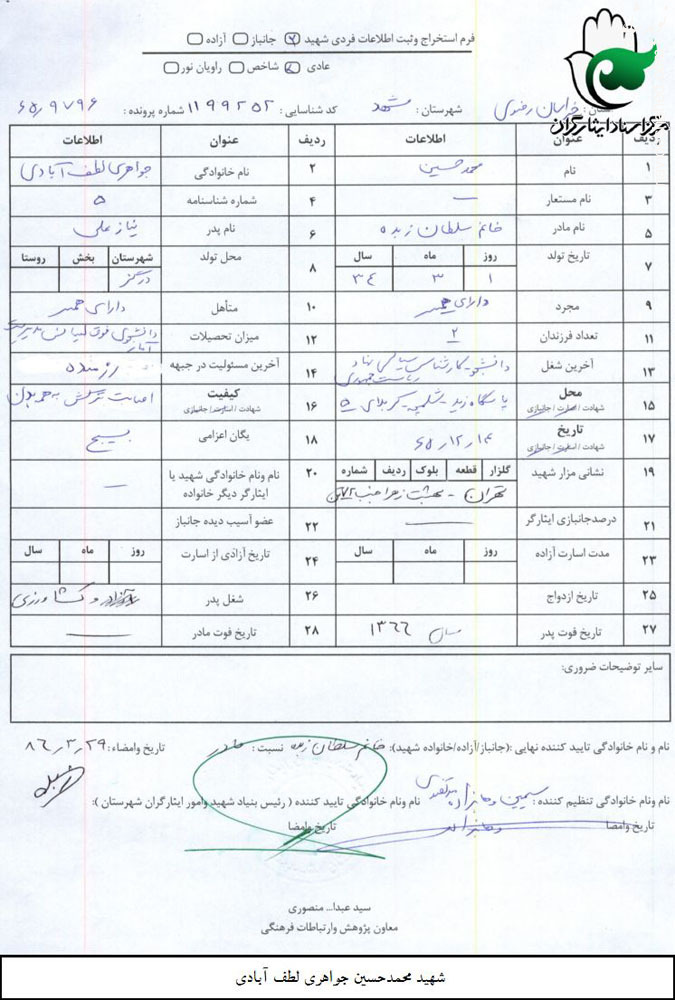 فرم استخراج وثبت اطلاعات فردی شهید جانباز آزاده
عادی شاخص راویان نور
مرکز اسناد ایثارگران
استان: خراسان رضوی شهرستان: مشهد کد شناسایی: ۱۱۹۹۲۵۲ شماره پرونده: ۶۵/۹۷۹۶
ردیف عنوان اطلاعات ردیف عنوان اطلاعات
۱ نام محمدحسین ۲ نام خانوادگی جواهری لطف آبادی
۳ نام مستعار — ۴ شماره شناسنامه ۵
۵ نام مادر خانم سلطان زبده ۶ نام پدر نیاز علی
۷ تاریخ تولد روز ماه سال ۸ محل تولد شهرستان بخش روستا
۱ ۳ ۳۴ درگز
۹ مجرد دارای همسر ۱۰ متأهل دارای همسر
۱۱ تعداد فرزندان ۲ ۱۲ میزان تحصیلات دانشجوی فوق لیسانس مدیریت
۱۳ آخرین شغل دانشجو - کارشناس سیاسی نهاد ریاست جمهوری ۱۴ آخرین مسئولیت در جبهه رزمنده
۱۵ محل شهادت / اسارت / جانبازی پاسگاه زید - شلمچه - کربلای ۵ ۱۶ کیفیت شهادت / اسارت / جانبازی اصابت ترکش به
۱۷ تاریخ شهادت / اسارت / جانبازی ۶۵/۱۲/۱۴ ۱۸ یگان اعزامی بسیج
۱۹ نشانی مزار شهید گلزار قطعه بلوک ردیف شماره ۲۰ نام ونام خانوادگی شهید یا ایثارگر دیگر خانواده —
تهران - بهشت زهرا
۲۱ درصدجانبازی ایثارگر — ۲۲ عضو آسیب دیده جانباز
۲۳ مدت اسارت آزاده روز ماه سال ۲۴ تاریخ آزادی از اسارت روز ماه سال
۲۵ تاریخ ازدواج ۲۶ شغل پدر کشاورزی
۲۷ تاریخ فوت پدر سال ۱۳۶۶ ۲۸ تاریخ فوت مادر —
سایر توضیحات ضروری:
نام و نام خانوادگی تایید کننده نهایی :(جانباز/آزاده/خانواده شهید): خانم سلطان زبده نسبت : مادر تاریخ وامضاء : ۸۶/۳/۲۹
نام ونام خانوادگی تنظیم کننده : سیمین نام ونام خانوادگی تایید کننده ( رئیس بنیاد شهید وامور ایثارگران شهرستان ):
تاریخ وامضا تاریخ وامضا
سید عبدا... منصوری
معاون پژوهش وارتباطات فرهنگی
شهید محمدحسین جواهری لطف آبادی